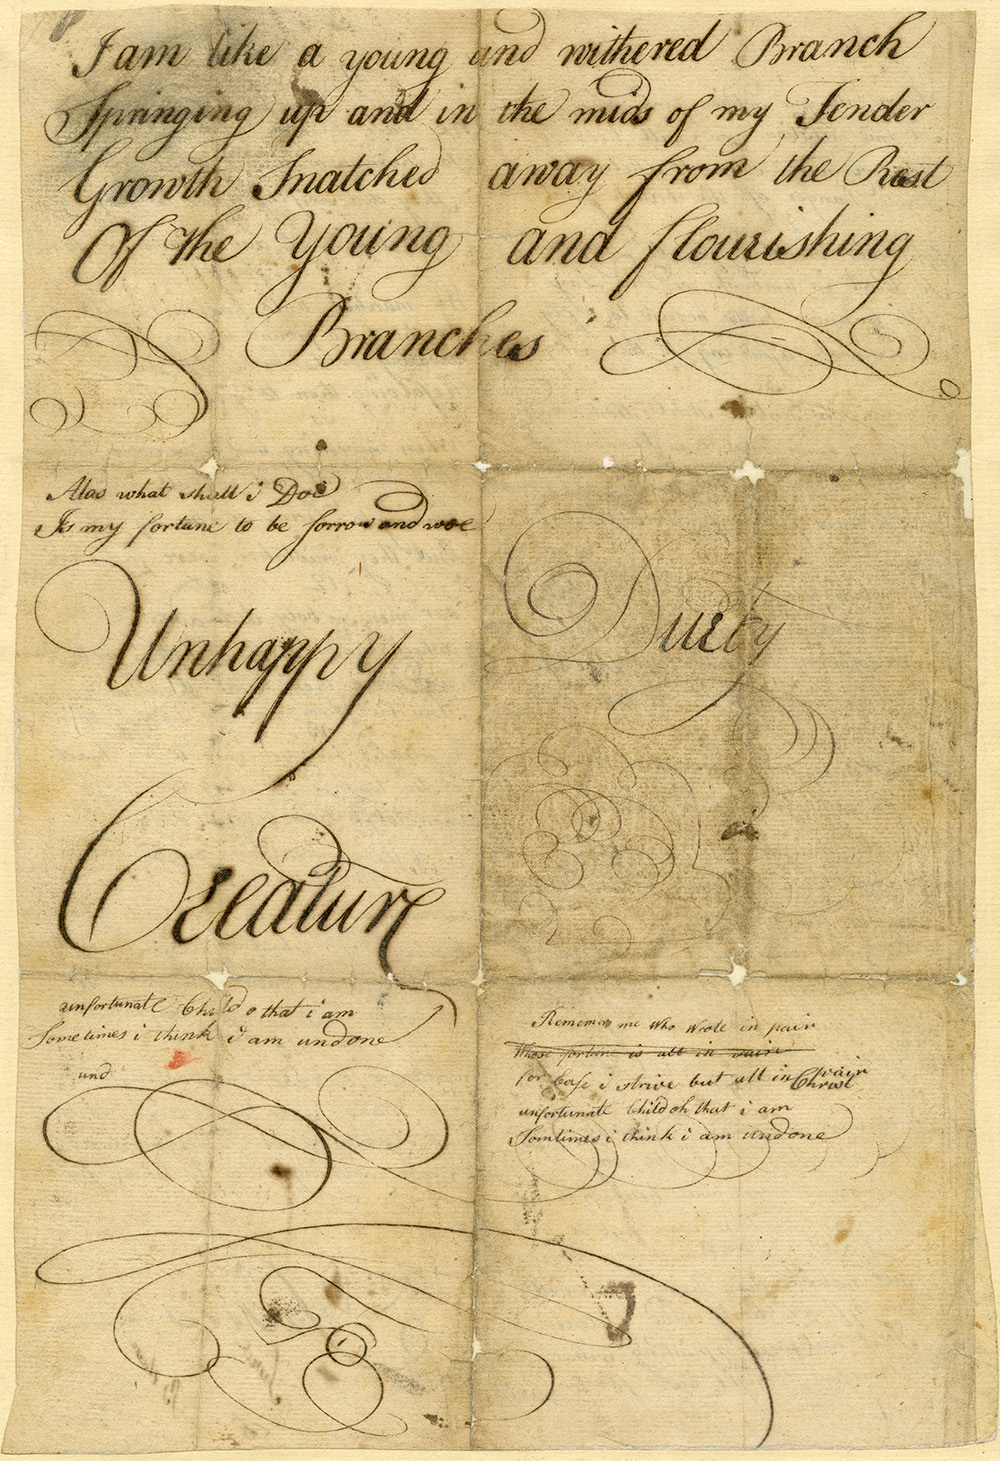 I am like a young and withered Branch
Springing up and in the mids of my Tender
Growth Snatched away from the Rest
Of the Young and flourishing
Branches
Alas what shall i Doe
Is my fortune to be sorrow and woe
Unhappy
Creature
Duety
unfortunate Child o that i am
Sometimes i think i am undone
und
Remember me Who Wrote in pain
Whose fortune is all in vain
for Ease i strive but all in vain
Christ
unfortunate Child oh that i am
Somtimes i think i am undone